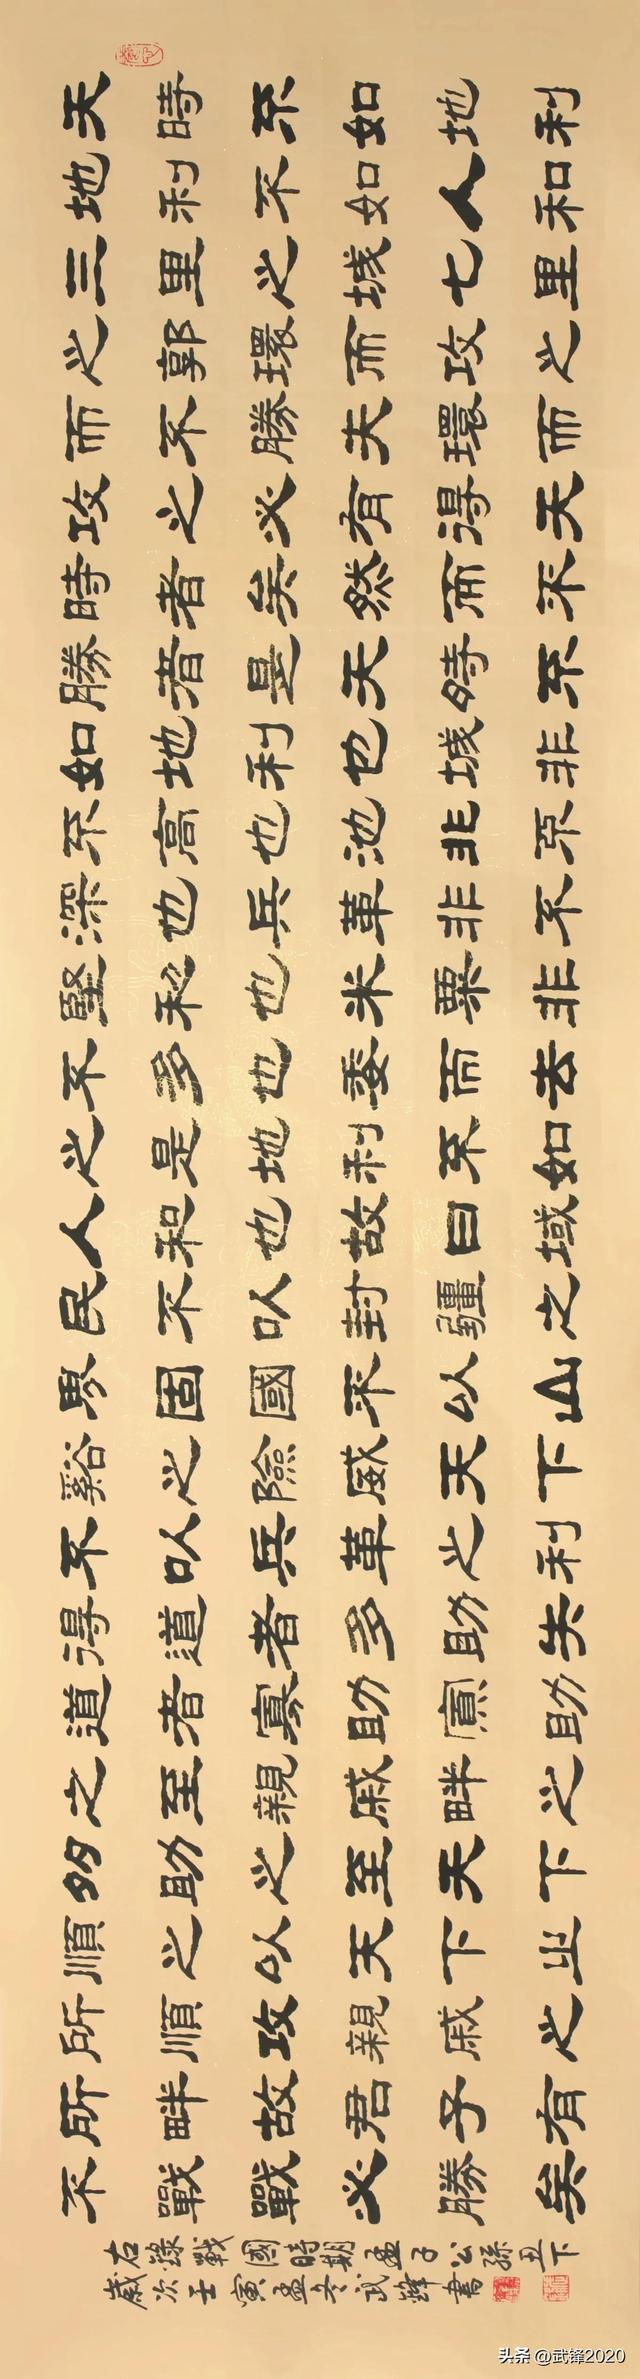 天時不如地利
地利不如人和
三里之城七里
之郭環而攻之
而不勝夫環而
攻之必有得天
時者矣然而不
勝者是天時不
如地利也城非
不高也池非不
深也兵革非不
堅利也米粟非
不多也委而去
之是地利不如
人和也故曰域
民不以封疆之
界固國不以山
谿之險威天下
不以兵革之利
得道者多助失
道者寡助寡助
之至親戚畔之
多助之至天下
順之以天下之
所順攻親戚之
所畔故君子有
不戰戰必勝矣
右錄戰國時期孟子公孫丑下
歲次壬寅孟冬武鋒書
头条 @武锋2020